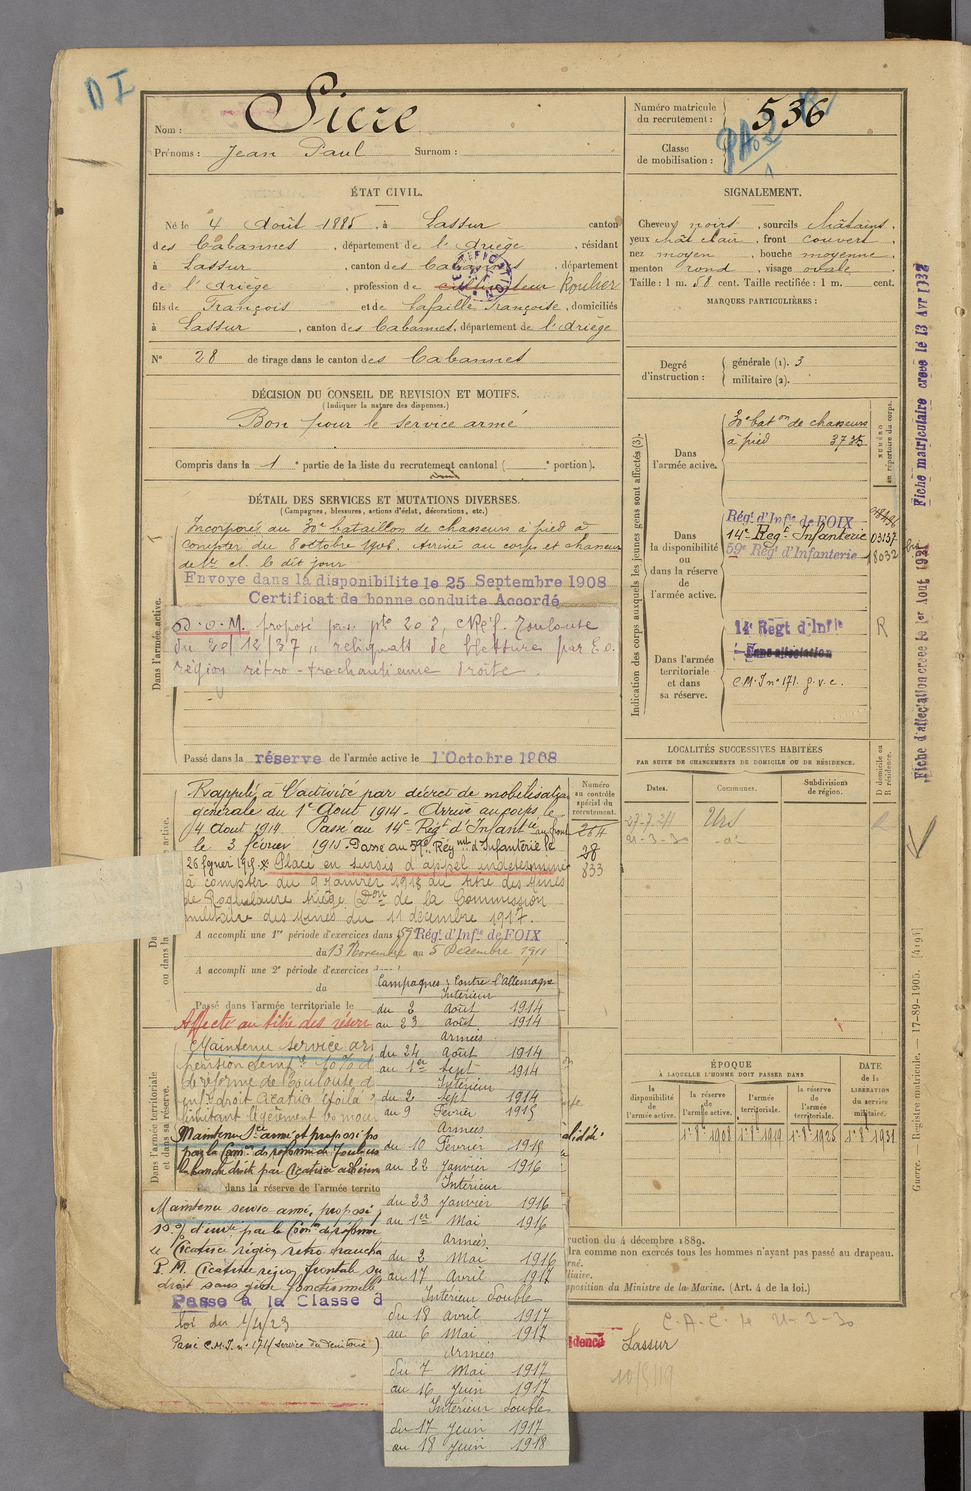 D I
Nom : Sicre
Prénoms : Jean Paul Surnom :
Numéro matricule du recrutement : 536
Classe de mobilisation :
ÉTAT CIVIL.
Né le 4 Août 1885, à Lassur canton
des Cabannes, département de l'Ariège, résidant
à Lassur, canton des Cabannes, département
de l'Ariège, profession de cultivateur Roulier
fils de François et de Lafaille Françoise, domiciliés
à Lassur, canton des Cabannes, département de l'Ariège
N° 28 de tirage dans le canton des Cabannes
SIGNALEMENT.
Cheveux noirs, sourcils châtains,
yeux chât clair, front couvert,
nez moyen, bouche moyenne,
menton rond, visage ovale
Taille : 1 m. 58 cent. Taille rectifiée : 1 m. cent.
MARQUES PARTICULIÈRES :
Degré d'instruction : générale (1). 3
militaire (2).
DÉCISION DU CONSEIL DE REVISION ET MOTIFS.
(Indiquer la nature des dispenses.)
Bon pour le service armé
Compris dans la 1e partie de la liste du recrutement cantonal ( e portion).
DÉTAIL DES SERVICES ET MUTATIONS DIVERSES.
(Campagnes, blessures, actions d'éclat, décorations, etc.)
Dans l'armée active.
Incorporé au 30e bataillon de chasseurs à pied à
compter du 8 octobre 1906. Arrivé au corps et chasseur
de 2e cl. le dit jour
Envoyé dans la disponibilité le 25 Septembre 1908
Certificat de bonne conduite Accordé
proposé par Toulouse
du 20/12/37 " reliquats de blessure par E.O.
région rétro-trochantienne droite.
Passé dans la réserve de l'armée active le 1 Octobre 1908
Rappelé à l'activité par décret de mobilisation
générale du 1er Août 1914. Arrivé au corps le
4 Aout 1914. Passé au 14e Régt d'Infantie au front
le 3 février 1915. Passe au 59e Régmt d'Infanterie le
26 février 1915. Placé en sursis d'appel indéterminé
à compter du 9 Janvier 1918 au titre des Mines
de Roquelaure Ariège Don de la Commission
militaire des Mines du 11 décembre 1917.
A accompli une 1re période d'exercices dans 59e Régt d'Infie de FOIX
du 13 Novembre au 5 Décembre 1911
A accompli une 2e période d'exercices
du
Passé dans l'armée territoriale le
Affecté au titre des réser
Dans l'armée territoriale et dans sa réserve.
Maintenu service ar
pension temp 10% d
de réforme de Toulouse d
droit cicatrice étoilé
limitant légèrement les mou
Maintenu sce armé et proposé po
par la Comon de réforme de Toulous
hanche droite par cicatrice adhéren
dans la réserve de l'armée territo
Maintenu service armé, proposé
par la Comon de réforme
Cicatrice région rétro trocha
P.M. Cicatrice région frontale su
droit sans gêne fonctionnelle
Passé à la Classe d
loi du 1/4/23
Passé C.M.I. n° 171 (service du territoire)
Numéro au contrôle spécial du recrutement.
264
28
833
Campagnes : Contre l'Allemagne
Intérieur
du 2 août 1914
au 23 août 1914
Armées
du 24 août 1914
au 1er Sept 1914
Intérieur
du 2 Sept 1914
au 9 Février 1915
Armées
du 10 Février 1915
au 22 Janvier 1916
Intérieur
du 23 Janvier 1916
au 1er Mai 1916
Armées
du 2 Mai 1916
au 17 Avril 1917
Intérieur double
du 18 avril 1917
au 6 Mai 1917
Armées
du 7 Mai 1917
au 16 Juin 1917
Intérieur double
du 17 Juin 1917
au 18 Juin 1918
Indication des corps auxquels les jeunes gens sont affectés (3).
NUMÉRO au répertoire du corps.
Dans l'armée active.
30e baton de chasseurs
à pied 3735
Dans la disponibilité ou dans la réserve de l'armée active.
Régt d'Infie de FOIX
14e Regt Infanterie 03137
59e Régt d'Infanterie 18032
Dans l'armée territoriale et dans sa réserve.
14e Régt d'Infie R
Sans affectation
C.M.I n° 171. g.v.c.
LOCALITÉS SUCCESSIVES HABITÉES
PAR SUITE DE CHANGEMENTS DE DOMICILE OU DE RÉSIDENCE.
Dates. Communes. Subdivisions de région. D domicile ou R résidence.
27-7-21 Urs
21-3-30
ÉPOQUE
À LAQUELLE L'HOMME DOIT PASSER DANS
la disponibilité de l'armée active. la réserve de l'armée active. l'armée territoriale. la réserve de l'armée territoriale.
DATE de la LIBÉRATION du service militaire.
1er 8bre 1908 1er 8bre 1919 1er 8bre 1925 1er 8bre 1931
ruction du 4 décembre 1889.
dra comme non exercés tous les hommes n'ayant pas passé au drapeau.
rné.
liaire.
sposition du Ministre de la Marine. (Art. 4 de la loi.)
idence Lassur
21-3-30
10/5/19
Fiche matriculaire créée le 13 Avr 1932
Fiche d'affectation créée le 1er Aout 1931
Guerre. — Registre matricule. 17-89-1905. [4194]